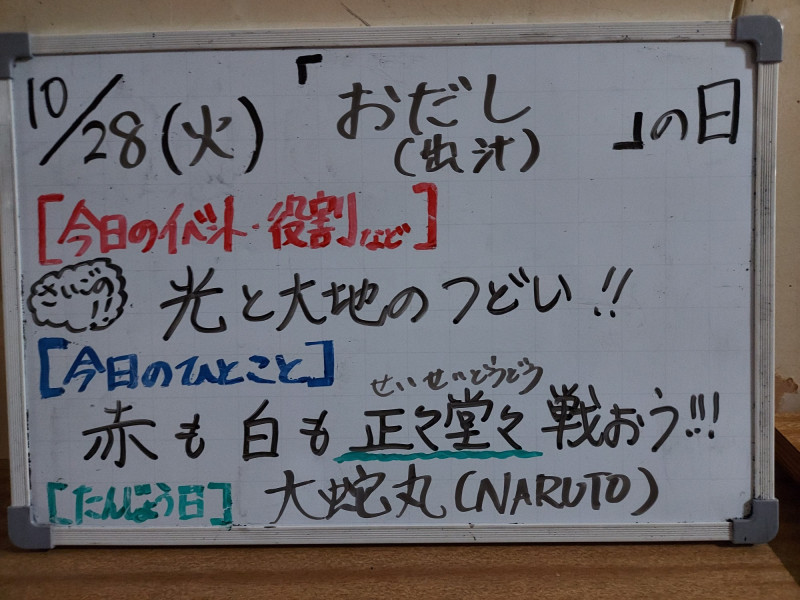 10/28(火) 「おだし(出汁)」の日
[今日のイベント・役割など]
さいごの!! 光と大地のつどい!!
[今日のひとこと]
せいせいどうどう
赤も白も正々堂々戦おう!!!
[たんじょう日] 大蛇丸(NARUTO)